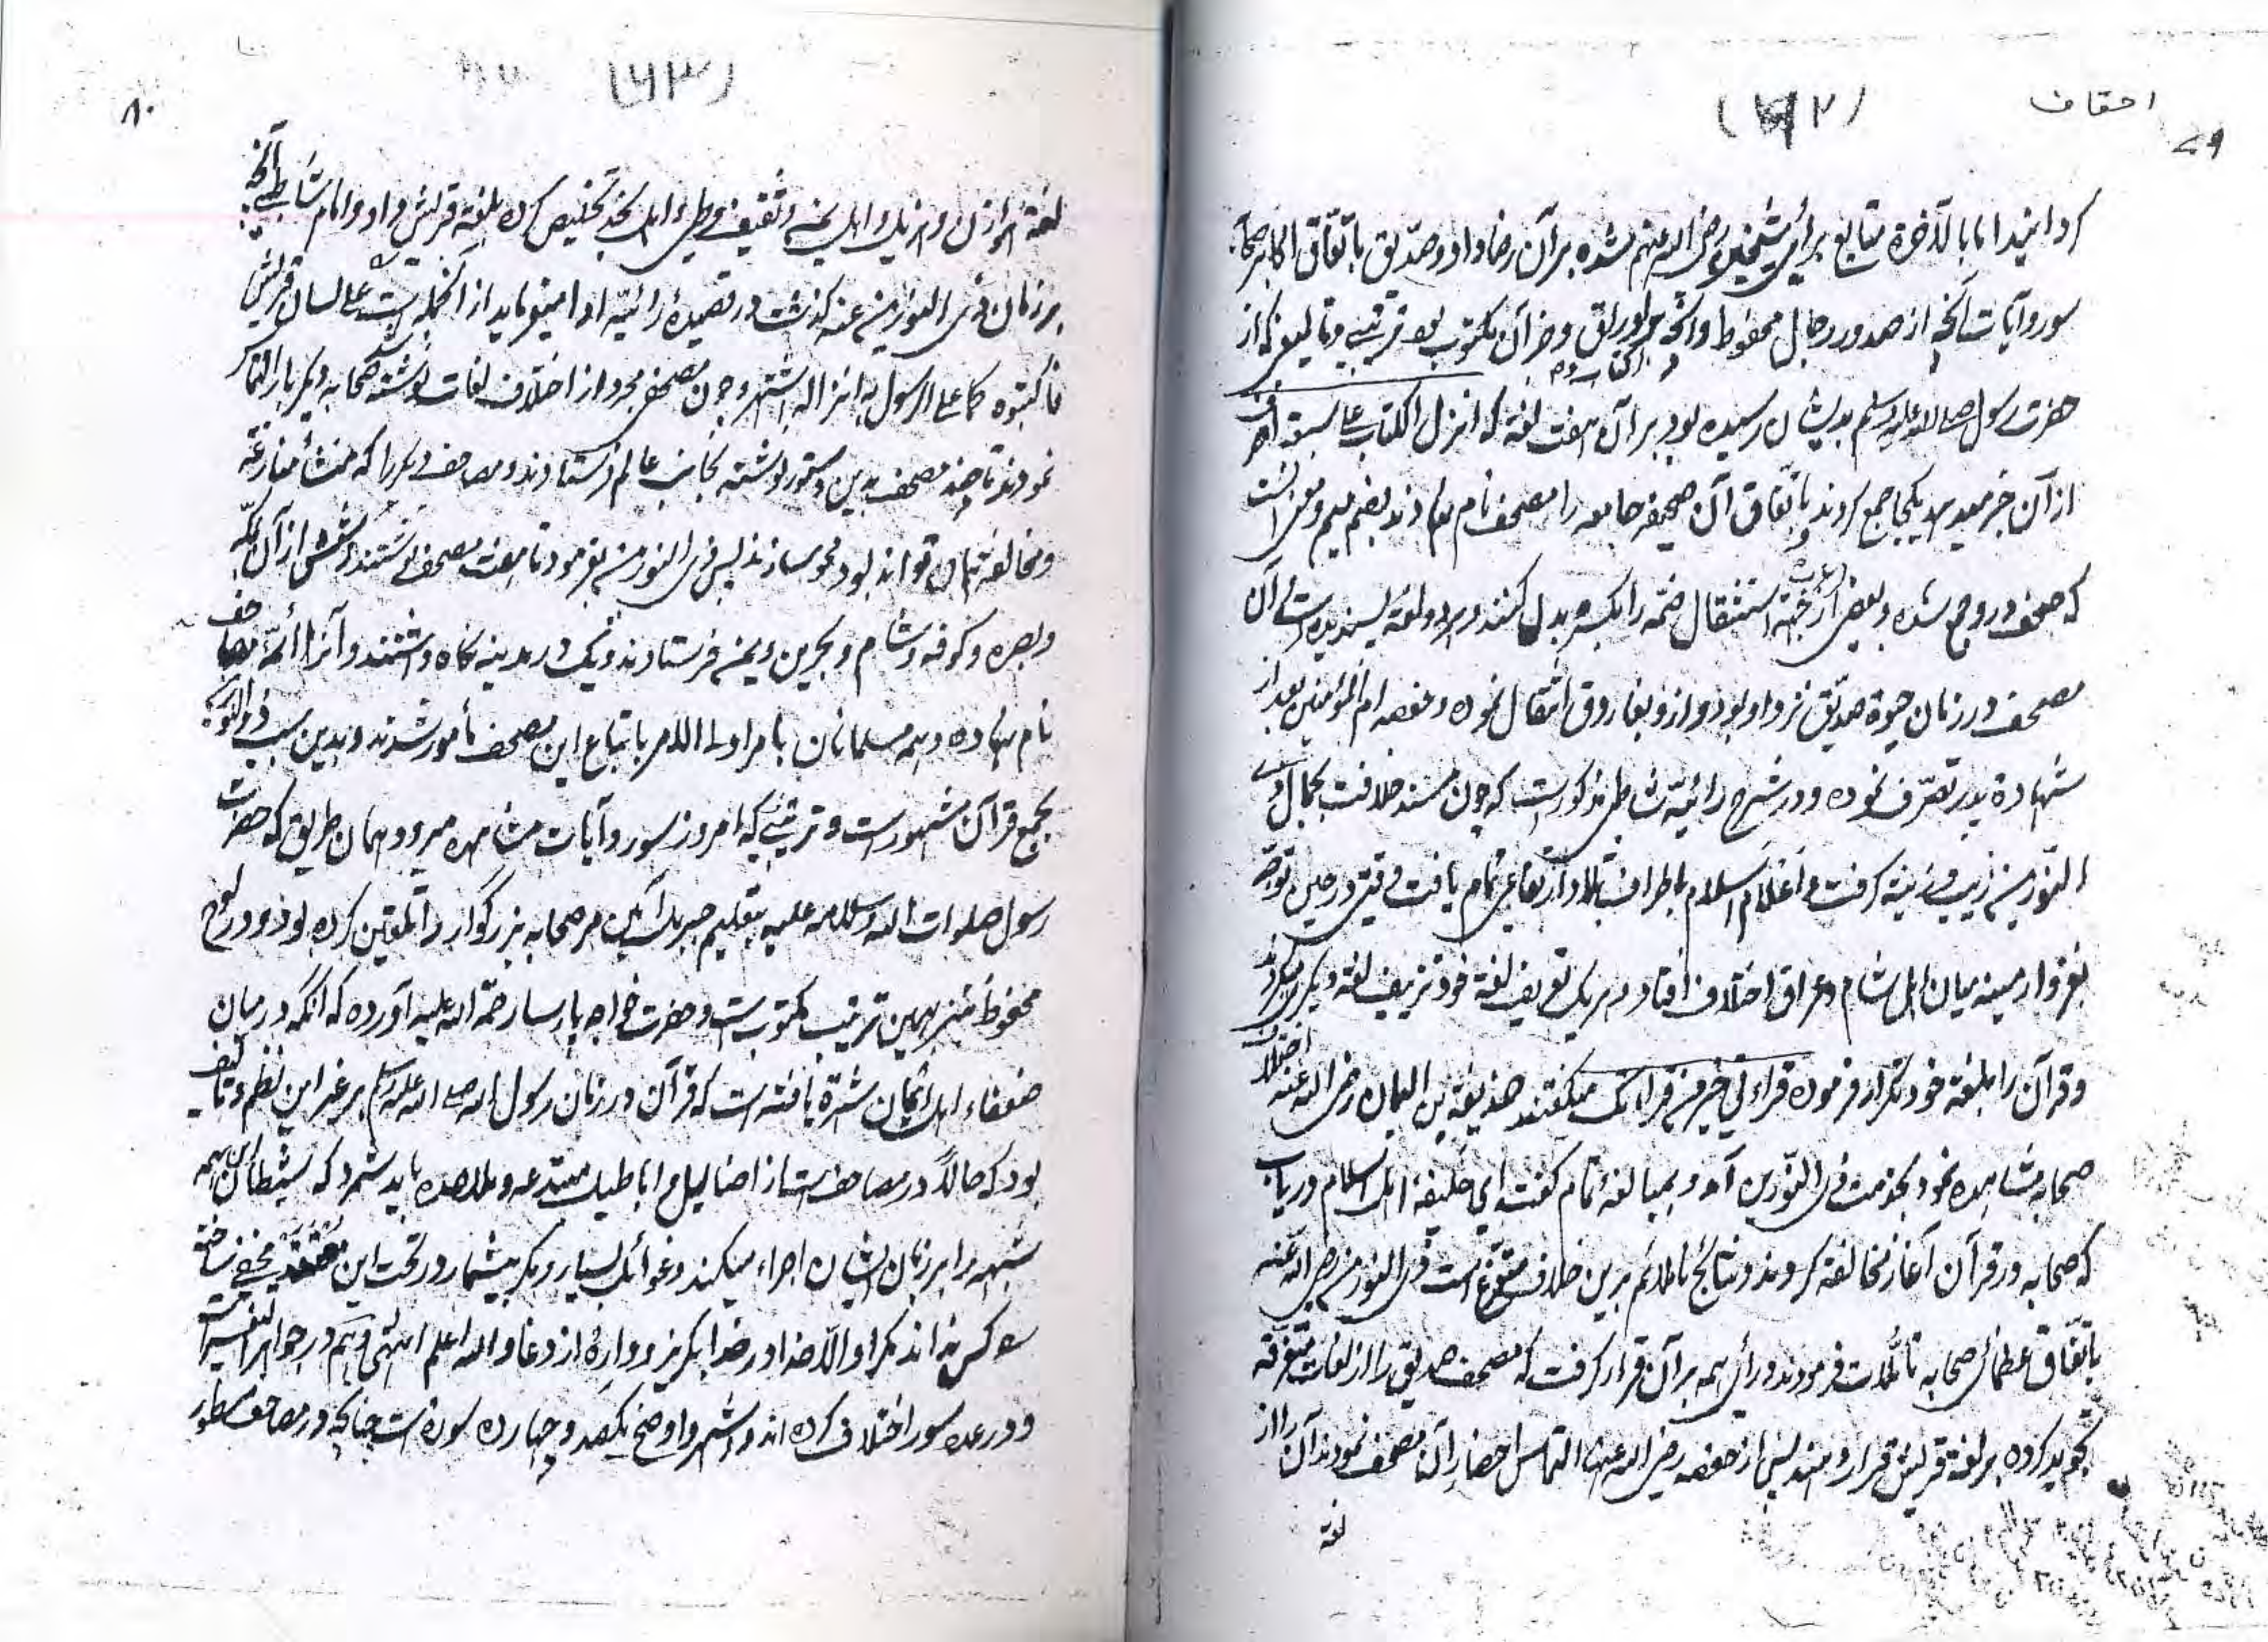 احقاف
۷۹
(۶۲)
کردانیدند اما بالآخرة متابع برأی شیخین رضی الله عنهم شده برآن رضا داد وصدّیق باتفاق اکابر صحابه
سور وآیات آنچه از صدور رجال محفوظ وآنچه در اوراق وجز آن مکتوب بود ترتیبی وتألیفی که از
حضرت رسول صلی الله علیه وسلم بدیشان رسیده بود برآن هفت لغة که انزل الکتاب علی سبعة احرف
از آن خبر میدهد یکجا جمع کردند وباتفاق آن صحیفه جامعه را مصحف نام نهادند بضم میم ومعنی آنست
که صحف درو جمع شده وبعضی از جهة استثقال ضمه را بکسره بدل کنند وهر دو لغة پسندیده است آن
مصحف در زمان حیوة صدیق نزد او بود واز و بفاروق انتقال نموده وحفصه ام المؤمنین بعد از
شهادة پدر تصرّف نموده ودر شرح رائیّة شاطبی مذکورست که چون مسند خلافت بجمال ذی
النّورین زیب وزینة گرفت واعلام اسلام باطراف بلاد ارتفاعی تمام یافت وقتی در حین توجه
بغزو ارمینه میان اهل شام وعراق اختلاف افتاد وهر یک تعریف لغة خود وتزییف لغة دیگر میکردند
وقرآن را بلغة خود تکرار فرموده قراءتی خیر من قراءتک میکفتند حذیفة بن الیمان رضی الله عنه اختلاف
صحابه مشاهده نمود بخدمت ذی النّورین آمد وبمبالغه تمام کفت ای خلیفة اهل اسلام دریاب
که صحابه در قرآن آغاز مخالفة کردند ونتایج ناملائم برین خلاف متفرّع است ذی النورین رضی الله عنه
باتّفاق عظمای صحابه تأمّلات فرمودند ورأی همه برآن قرار کرفت که مصحف صدیق را از لغات متفرّقه
تجرید کرده بر لغة قریش قرار دهند پس از حفصه رضی الله عنها التماس احضار آن مصحف نمودند آن را از
لغة
۸۰
(۶۳)
لغة هوازن وهذیل واهل یمن وثقیف وطی واهل نجد تخلیص کرده بلغة قریش قرار داد وامام شاطبی آنچه
بر زبان ذی النورین عنه گذشت در قصیدهٔ رائیّة ادا میفرماید از آنجمله است علی لسان قریش
فاکتبوه کما علی الرسول به انزاله اشتهر وچون مصحفی مجرد از اختلاف لغات نوشته شد صحابه دیگر بار التماس
نمودند تا چند مصحف بدین دستور نوشته بجانب عالم فرستادند ومصاحف دیگر را که منشأ منازعة
ومخالفة تواند بود محو سازند پس ذی النورین بفرمود تا هفت مصحف نوشتند وشش از آن بمکه
وبصره وکوفه وشام وبحرین ویمن فرستادند ویک در مدینه نگاه داشتند وآنرا ائمّة مصاحف
نام نهاده وهمه مسلمانان بامر اولی الامر باتباع این مصحف مأمور شدند وبدین سبب ذو النورین
بجمع قرآن مشهورست وترتیبی که امروز سور وآیات مشاهده میرود همان طریق که حضرت
رسول صلوات الله وسلامه علیه بتعلیم جبریل امین مر صحابه بزرگوار را تلقین کرده بود ودر لوح
محفوظ نیز بهمین ترتیب مکتوبست وحضرت خواجه پارسا رحمة الله علیه آورده که آنکه در میان
ضعفاء اهل ایمان شهرة یافته است که قرآن در زمان رسول الله صلی الله علیه وسلم بر غیر این نظم وتألیف
بود که حالا در مصاحف است از اضالیل و اباطیل مبتدعه وملاحده باید شمرد که شیطان این همه
شبهه را بر زبان ایشان اجراء میکند وغوائل بسیار ومکر بیشمار در تحت این مخفی ساخته
هر کس نه اند بکر او الّا خدا در خدا بکریز ووارهٔ از دغا والله اعلم انتهی وهم در جواهر التفسیر است
ودر عدد سور اختلاف کرده اند واشهر واوضح یکصد وچهارده سورة است چنانچه در مصاحف مسطور